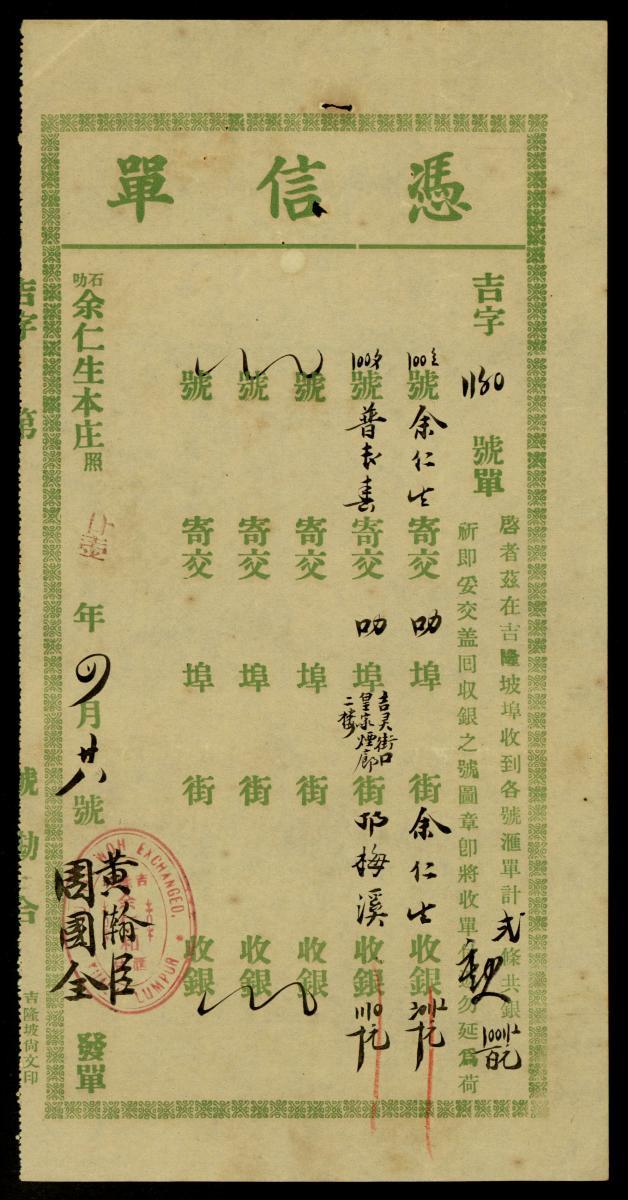 憑信單
吉字 號單
啓者茲在吉隆坡埠收到各號滙單計弍條共銀
祈即妥交盖回收銀之號圖章卽將收單 勿延爲荷
號余仁生寄交叻埠 街余仁生收銀
號普長春寄交叻埠吉灵街口皇家煙廊二楼街邝梅溪收銀
號 寄交 埠 街 收銀
號 寄交 埠 街 收銀
號 寄交 埠 街 收銀
石叻余仁生本庄照 廿壹年四月廿六號 黄瀚臣 周國全 發單
WOH EXCHANGED.
LUMPUR
吉字 第 號勘合
吉隆坡尙文印